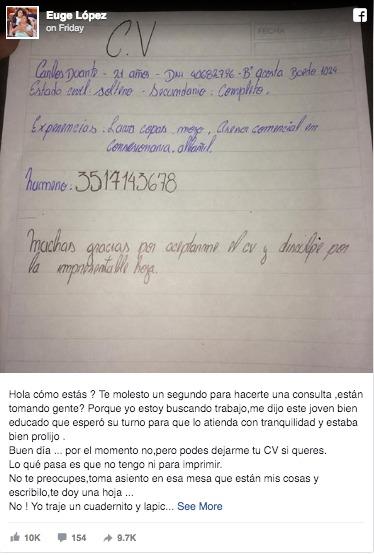 Euge López
on Friday
FECHA
C.V
Carlos Duarte - 21 años - DNI 40682796 - B° acosta Boedo 1024
Estado civil soltero - Secundario: Completo.
Experiencias: Lava copas, mozo, Asesor comercial en
Concesionaria, albañil.
Numero: 3517143678
Muchas gracias por aceptarme el cv y disculpe por
la impresentable hoja.
Hola cómo estás ? Te molesto un segundo para hacerte una consulta ,están
tomando gente? Porque yo estoy buscando trabajo,me dijo este joven bien
educado que esperó su turno para que lo atienda con tranquilidad y estaba
bien prolijo .
Buen día ... por el momento no,pero podes dejarme tu CV si queres.
Lo qué pasa es que no tengo ni para imprimir.
No te preocupes,toma asiento en esa mesa que están mis cosas y
escribilo,te doy una hoja ...
No ! Yo traje un cuadernito y lapic... See More
10K 154 9.7K